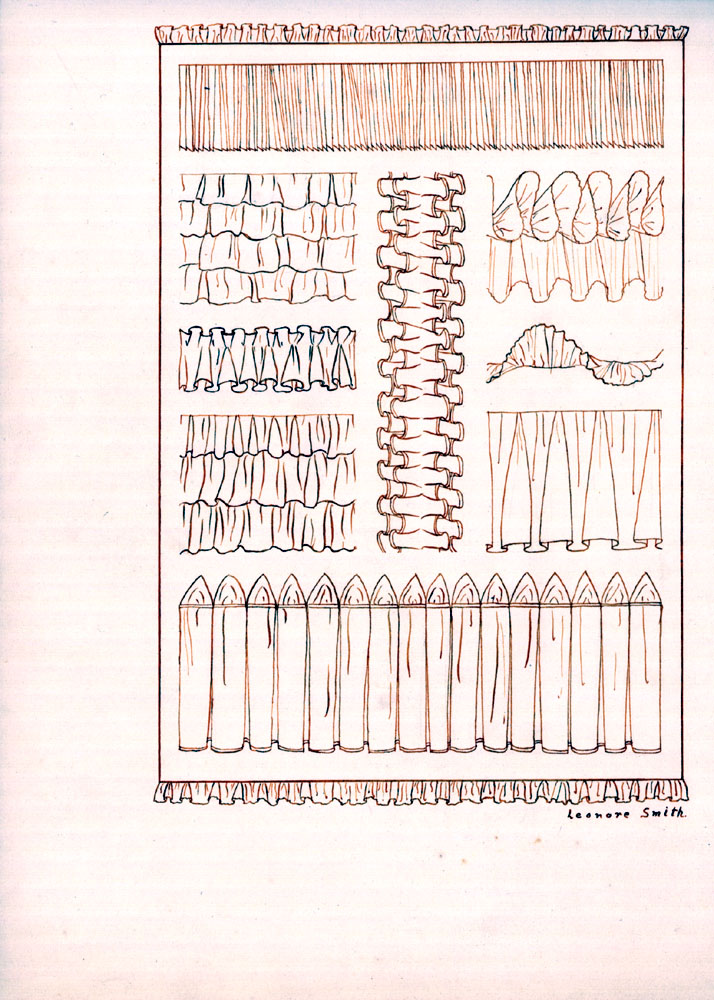 Leonore Smith.